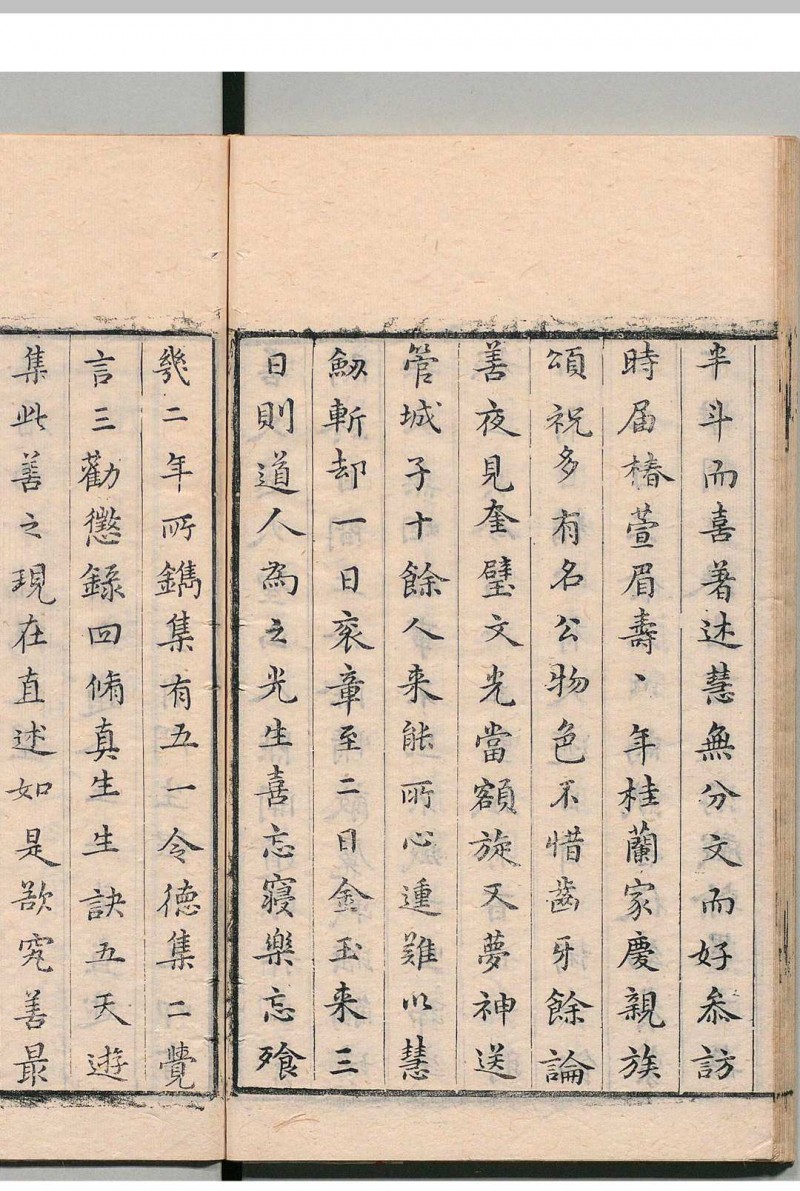 半斗而喜著述慧無分文而好叅訪
時届椿萱眉壽丶年桂蘭家慶親族
頌祝多有名公物色不惜齒牙餘論
善夜見奎壁文光當額旋又夢神送
管城子十餘人来能所心連難以慧
劔斬却一日衮章至二日金玉来三
日則道人為之光生喜忘寢樂忘飱
幾二年所鐫集有五一令德集二覺
言三勸懲錄四脩真生生訣五天遊
集此善之現在直述如是欲究善最